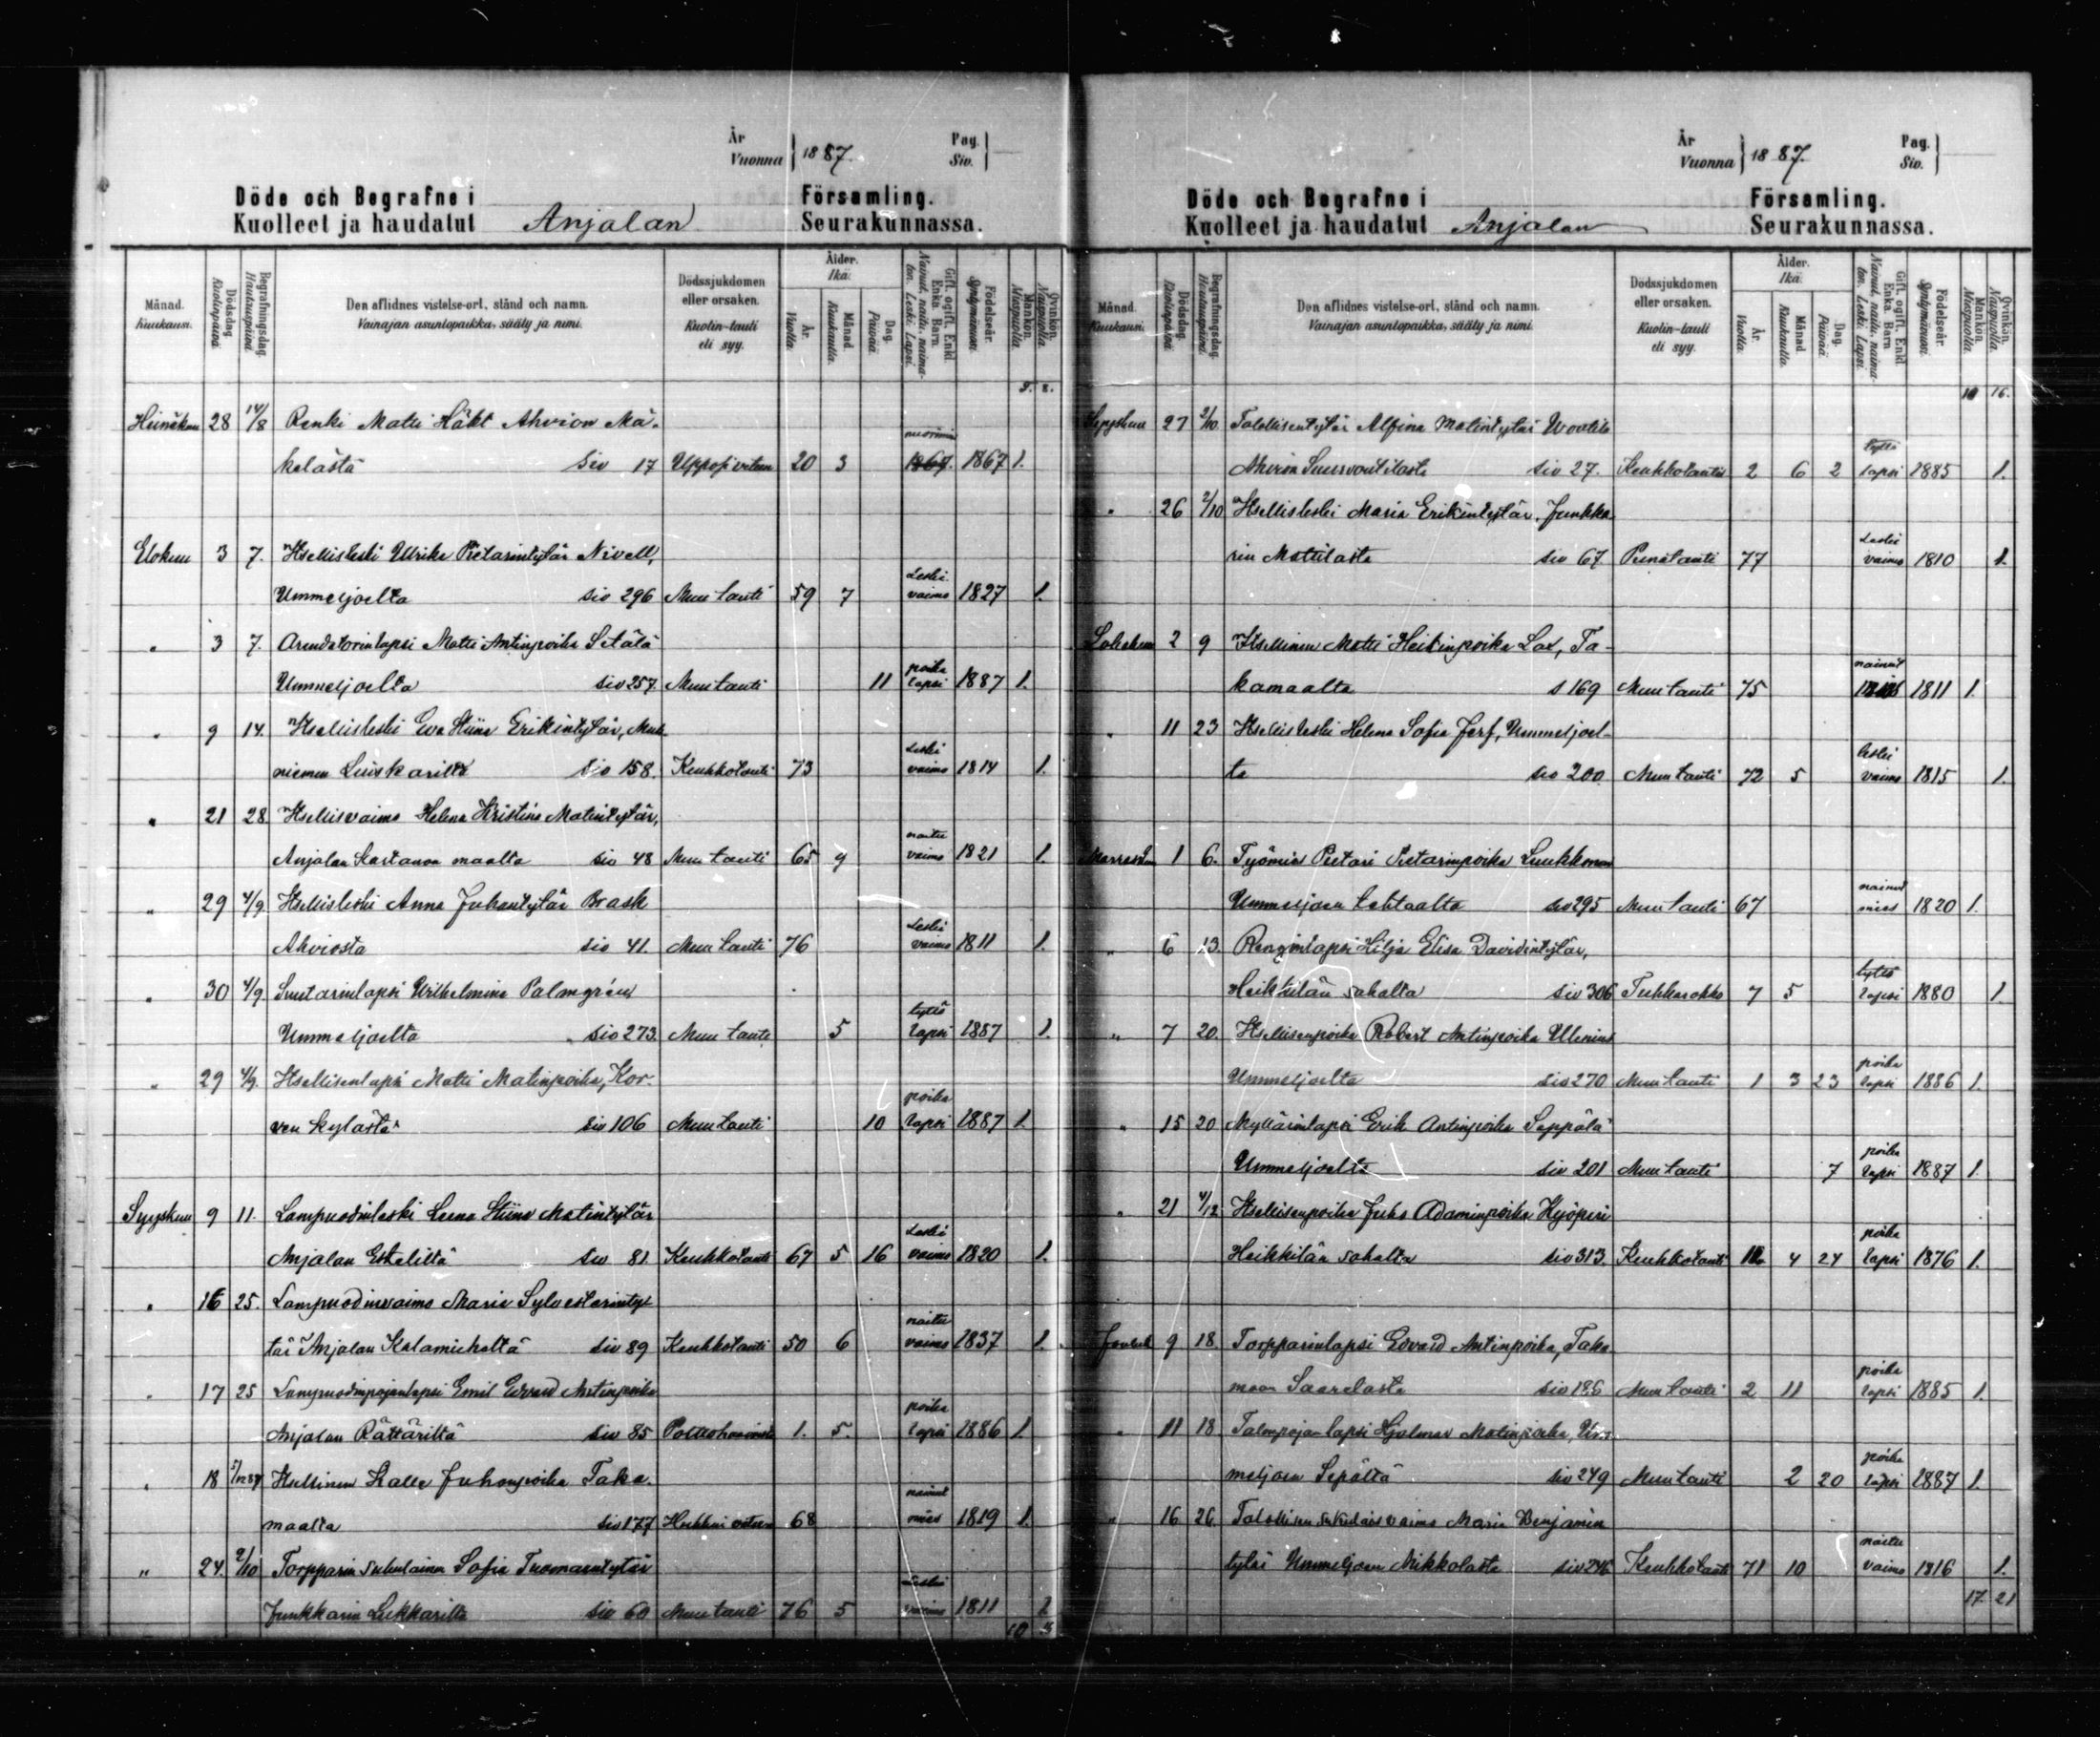 År
Vuonna 1887.
Pag.
Siv.
Döde och Begrafne i Församling.
Kuolleet ja haudatut Anjalan Seurakunnassa.
Månad. Kuukausi.
Dödsdag. Kuolinpäivä.
Begrafningsdag. Hautauspäivä.
Den aflidnes vistelse-ort, stånd och namn.
Vainajan asuntopaikka, sääty ja nimi.
Dödssjukdomen eller orsaken.
Kuolin-tauti eli syy.
Ålder. Ikä.
År. Vuotta.
Månad. Kuukautta.
Dag. Päivää.
Gift, ogift, Enkl. Enka. Barn
Nainut, naitu, naimaton. Leski. Lapsi.
Födelseår. Syntymävuosi.
Mankön. Miespuolia.
Qvinkön. Naispuolia.
8. 8.
Heinäkuu 28 14/8 Renki Matti Häkt Ahvion Mä-
kelästä siv 17 Upposi veteen 20 3 1867 1.
Elokuu 3 7. Itsellisleski Ulrika Pietarintytär Nivell,
Ummeljoelta siv 296 Muu tauti 59 7 Leski vaimo 1827 1.
" 3 7. Arendatorinlapsi Matti Antinpoika Setälä
Ummeljoelta siv 257. Muu tauti 11 poika lapsi 1887 1.
" 9 14. Itsellisleski Eva Stiina Erikintytär,
niemen siv 158. Keuhkotauti 73 Leski vaimo 1814 1.
" 21 28 Itsellisvaimo Helena Kristina Matintytär,
Anjalan Kartanon maalta siv 48 Muu tauti 65 9 naitu vaimo 1821 1.
" 29 4/9 Itsellisleski Anna Juhontytär Brask
Ahviosta siv 41. Muu tauti 76 Leski vaimo 1811 1.
" 30 4/9 Suutarinlapsi Wilhelmina Palmgrén
Ummeljoelta siv 273. Muu tauti 5 tyttö lapsi 1887 1.
" 29 4/9. Itsellisenlapsi Matti Matinpoika, Kor-
ven kylästä siv 106 Muu tauti 10 poika lapsi 1887 1.
Syyskuu 9 11. Lampuodinleski Leena Stiina Matintytär
Anjalan Eskelistä siv 81. Keuhkotauti 67 5 16 Leski vaimo 1820 1.
" 16 25. Lampuodinvaimo Maria Sylvesterinty-
tär Anjalan Kalamieheltä siv 89 Keuhkotauti 50 6 naitu vaimo 1837 1.
" 17 25 Lampuodinpojanlapsi Emil Edvard Antinpoika
Anjalan Rättäriltä siv 85 1. 5. poika lapsi 1886 1
" 18 Itsellinen Kalle Juhonpoika Taka-
maalta siv 177 68 nainut mies 1819 1.
" 24. 2/10 Torpparin sukulainen Sofia Tuomaantytär
Junkkarin Lukkarilta siv 60 Muu tauti 76 5 Leski vaimo 1811 1
10
År
Vuonna 1887.
Pag.
Siv.
Döde och Begrafne i Församling.
Kuolleet ja haudatut Anjalan Seurakunnassa.
Månad. Kuukausi.
Dödsdag. Kuolinpäivä.
Begrafningsdag. Hautauspäivä.
Den aflidnes vistelse-ort, stånd och namn.
Vainajan asuntopaikka, sääty ja nimi.
Dödssjukdomen eller orsaken.
Kuolin-tauti eli syy.
Ålder. Ikä.
År. Vuotta.
Månad. Kuukautta.
Dag. Päivää.
Gift, ogift, Enkl. Enka. Barn
Nainut, naitu, naimaton. Leski. Lapsi.
Födelseår. Syntymävuosi.
Mankön. Miespuolia.
Qvinkön. Naispuolia.
10 16.
Syyskuu 27 2/10. Talollisentytär Alfina Matintytär Woutila
Ahvion Suurvoutilasta siv 27. Keuhkotauti 2 6 2 tyttö lapsi 1885 1.
" 26 2/10 Itsellisleski Maria Erikintytär, Junkka-
rin Mattilasta siv 67. Punatauti 77 Leski vaimo 1810 1.
Lokakuu 2 9 Itsellinen Matti Heikinpoika Lax, Ta-
kamaalta s 169 Muu tauti 75 nainut 1811 1.
" 11 23 Itsellisleski Helena Sofia Jerf, Ummeljoel-
ta siv 200. Muu tauti 72 5 leski vaimo 1815 1.
Marraskuu 1 6. Työmies Pietari Pietarinpoika Luukkonen
Ummeljoen tehtaalta siv 295 Muu tauti 67 nainut mies 1820 1.
" 6 13. Renginlapsi Hilja Elisa Davidintytär,
Heikkilän sahalta siv 306 Tuhkarokko 7 5 tyttö lapsi 1880 1.
" 7 20. Itsellisenpoika Robert Antinpoika Ulenius
Ummeljoelta siv 270 Muu tauti 1 3 23 poika lapsi 1886 1.
" 15 20 Myllärinlapsi Erik Antinpoika Seppälä
Ummeljoelta siv 201 Muu tauti 7 poika lapsi 1887 1.
" 21 4/12 Itsellisenpoika Juho Adaminpoika Hyöperi
Heikkilän sahalta siv 313. Keuhkotauti 4 24 poika lapsi 1876 1.
Jouluk 9 18. Torpparinlapsi Edvard Antinpoika, Taka
maan Saarelasta siv 186 Muu tauti 2 11 poika lapsi 1885 1.
" 11 18 Talonpojan lapsi Hjalmar Matinpoika, Um-
meljoen Sepältä siv 249 Muu tauti 2 20 poika lapsi 1887 1.
" 16 26. Talollisen sukulais vaimo Maria Benjamin
tytär Ummeljoen Mikkolasta siv 246 Keuhkotauti 71 10 naitu vaimo 1816 1.
17. 21